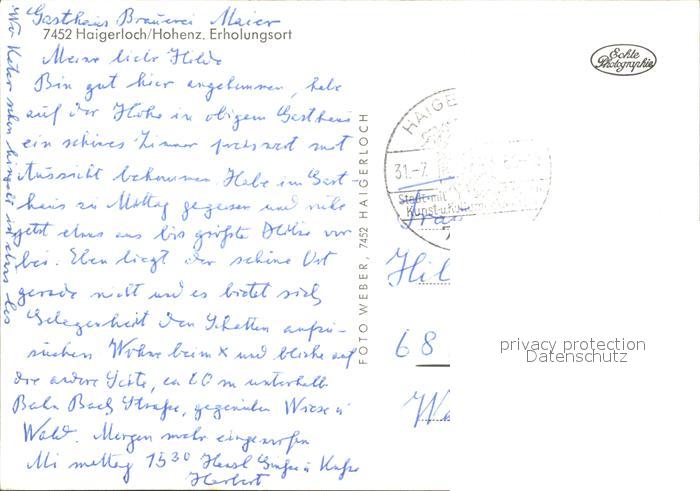 Gasthaus Brauerei Maier
7452 Haigerloch/Hohenz. Erholungsort
Meine liebe Hilde
Bin gut hier angekommen, habe
auf der Höhe in obigem Gasthaus
ein schönes Zimmer preiswert mit
Aussicht bekommen. Habe im Gast-
haus zu Mittag gegessen und ruhe
jetzt etwas aus bis größte Hitze vor
bei. Eben liegt der schöne Ort
gerade nicht und es bietet sich
Gelegenheit den Schatten aufzu-
suchen. Wohne beim X und blicke auf
die andere Seite, ca 20 m unterhalb
Bahn Bach Straße, gegenüber Wiese u
Wald. Morgen mehr eingeworfen
Mi mittag 15 30 Herzl Grüße u Küsse
Herbert
FOTO WEBER, 7452 HAIGERLOCH
Echte
Photographie
HAIGE
31.-7.
Stadt mit
Kunst u.
Frau
Hil
68
privacy protection
Datenschutz